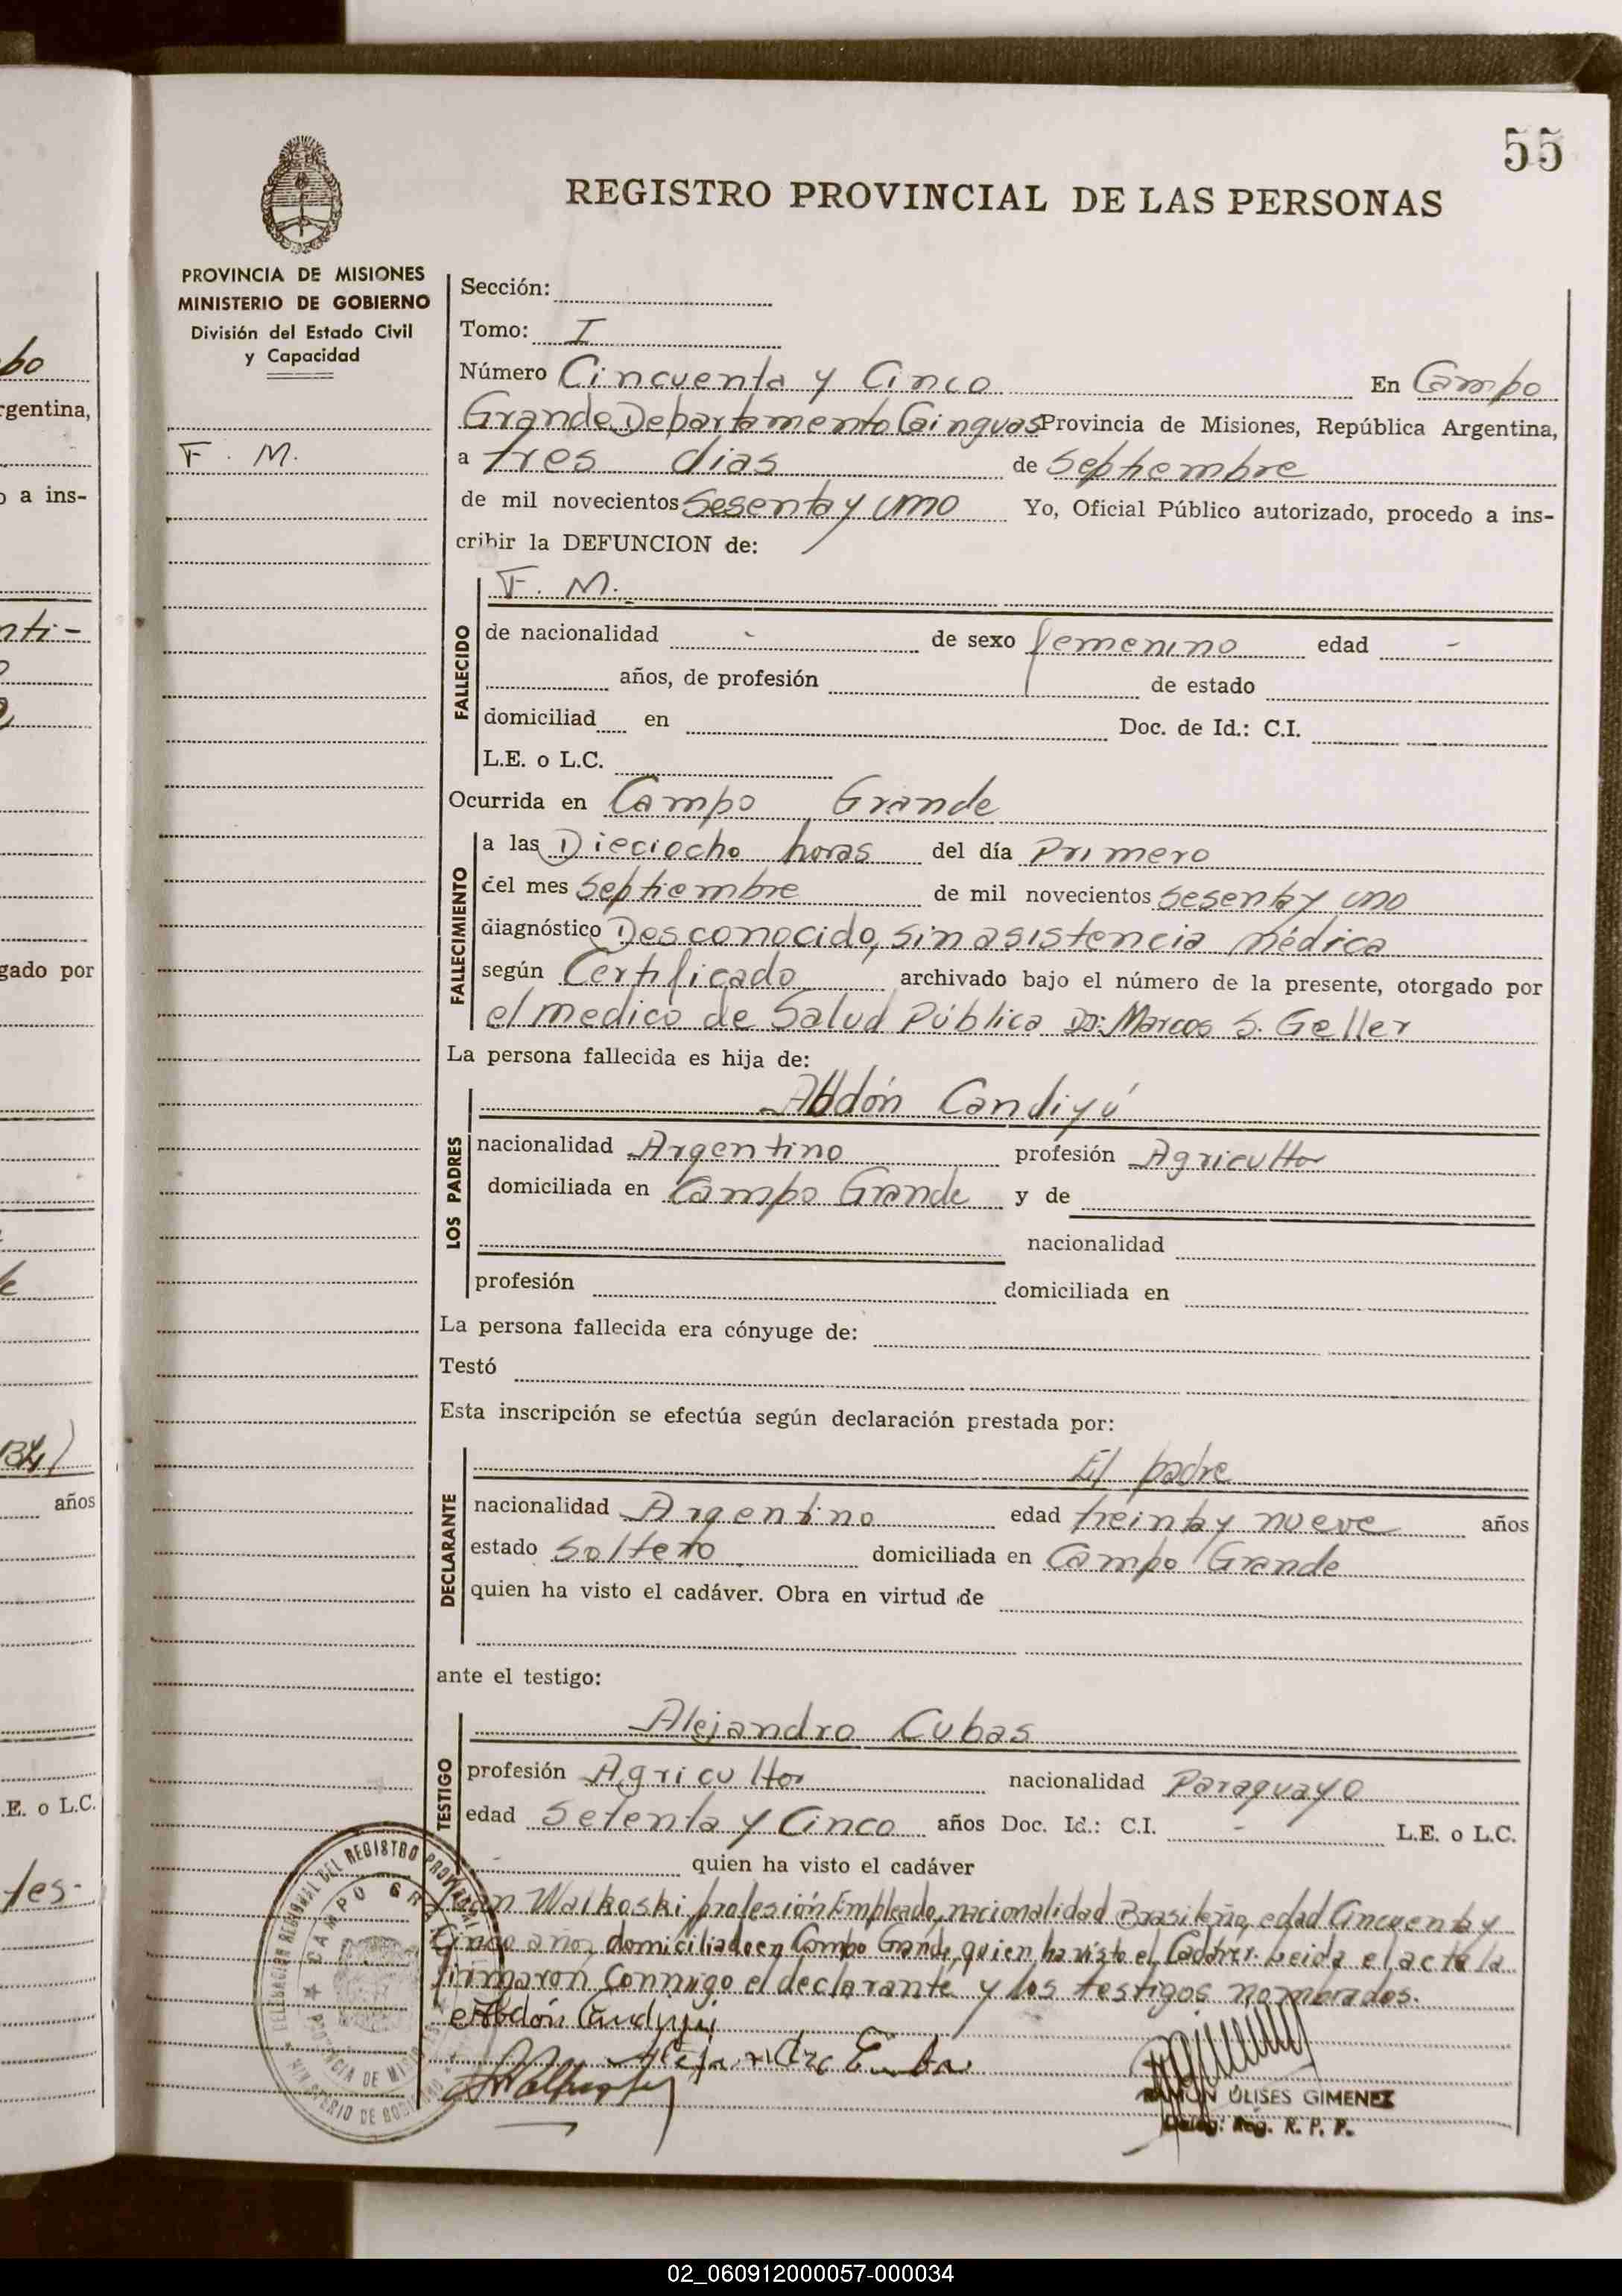 55
REGISTRO PROVINCIAL DE LAS PERSONAS
PROVINCIA DE MISIONES
MINISTERIO DE GOBIERNO
División del Estado Civil
y Capacidad
F. M.
Sección:
Tomo: I
Número Cincuenta y Cinco En Campo
Grande Departamento Cainguas Provincia de Misiones, República Argentina,
a tres dias de Septiembre
de mil novecientos Sesenta y uno Yo, Oficial Público autorizado, procedo a ins-
cribir la DEFUNCION de:
F. M.
FALLECIDO
de nacionalidad - de sexo femenino edad -
años, de profesión de estado
domiciliad en Doc. de Id.: C.I.
L.E. o L.C.
Ocurrida en Campo Grande
FALLECIMIENTO
a las Dieciocho horas del día Primero
del mes Septiembre de mil novecientos Sesenta y uno
diagnóstico Desconocido, sin asistencia médica
según Certificado archivado bajo el número de la presente, otorgado por
el medico de Salud Pública Dr: Marcos S. Geller
La persona fallecida es hija de:
LOS PADRES
Abdón Candiyú
nacionalidad Argentino profesión Agricultor
domiciliada en Campo Grande y de
nacionalidad
profesión domiciliada en
La persona fallecida era cónyuge de:
Testó
Esta inscripción se efectúa según declaración prestada por:
DECLARANTE
El padre
nacionalidad Argentino edad treinta y nueve años
estado Soltero domiciliada en Campo Grande
quien ha visto el cadáver. Obra en virtud de
ante el testigo:
TESTIGO
Alejandro Cubas
profesión Agricultor nacionalidad Paraguayo
edad Setenta y Cinco años Doc. Id.: C.I. - L.E. o L.C.
- quien ha visto el cadáver
Juan Walkoski profesión Empleado, nacionalidad Brasileño, edad Cincuenta y
Cinco años, domiciliado en Campo Grande, quien ha visto el Cadáver. Leida el acta la
firmaron conmigo el declarante y los testigos nombrados.
Abdón
RAMON ULISES GIMENEZ
Deleg. Reg. R. P. P.
DELEGACION REGIONAL DEL REGISTRO PROVINCIAL
CAMPO GRANDE
PROVINCIA DE MISIONES
MINISTERIO DE GOBIERNO
bo
rgentina,
o a ins-
nti-
gado por
134)
años
.E. o L.C.
tes-
02_060912000057-000034